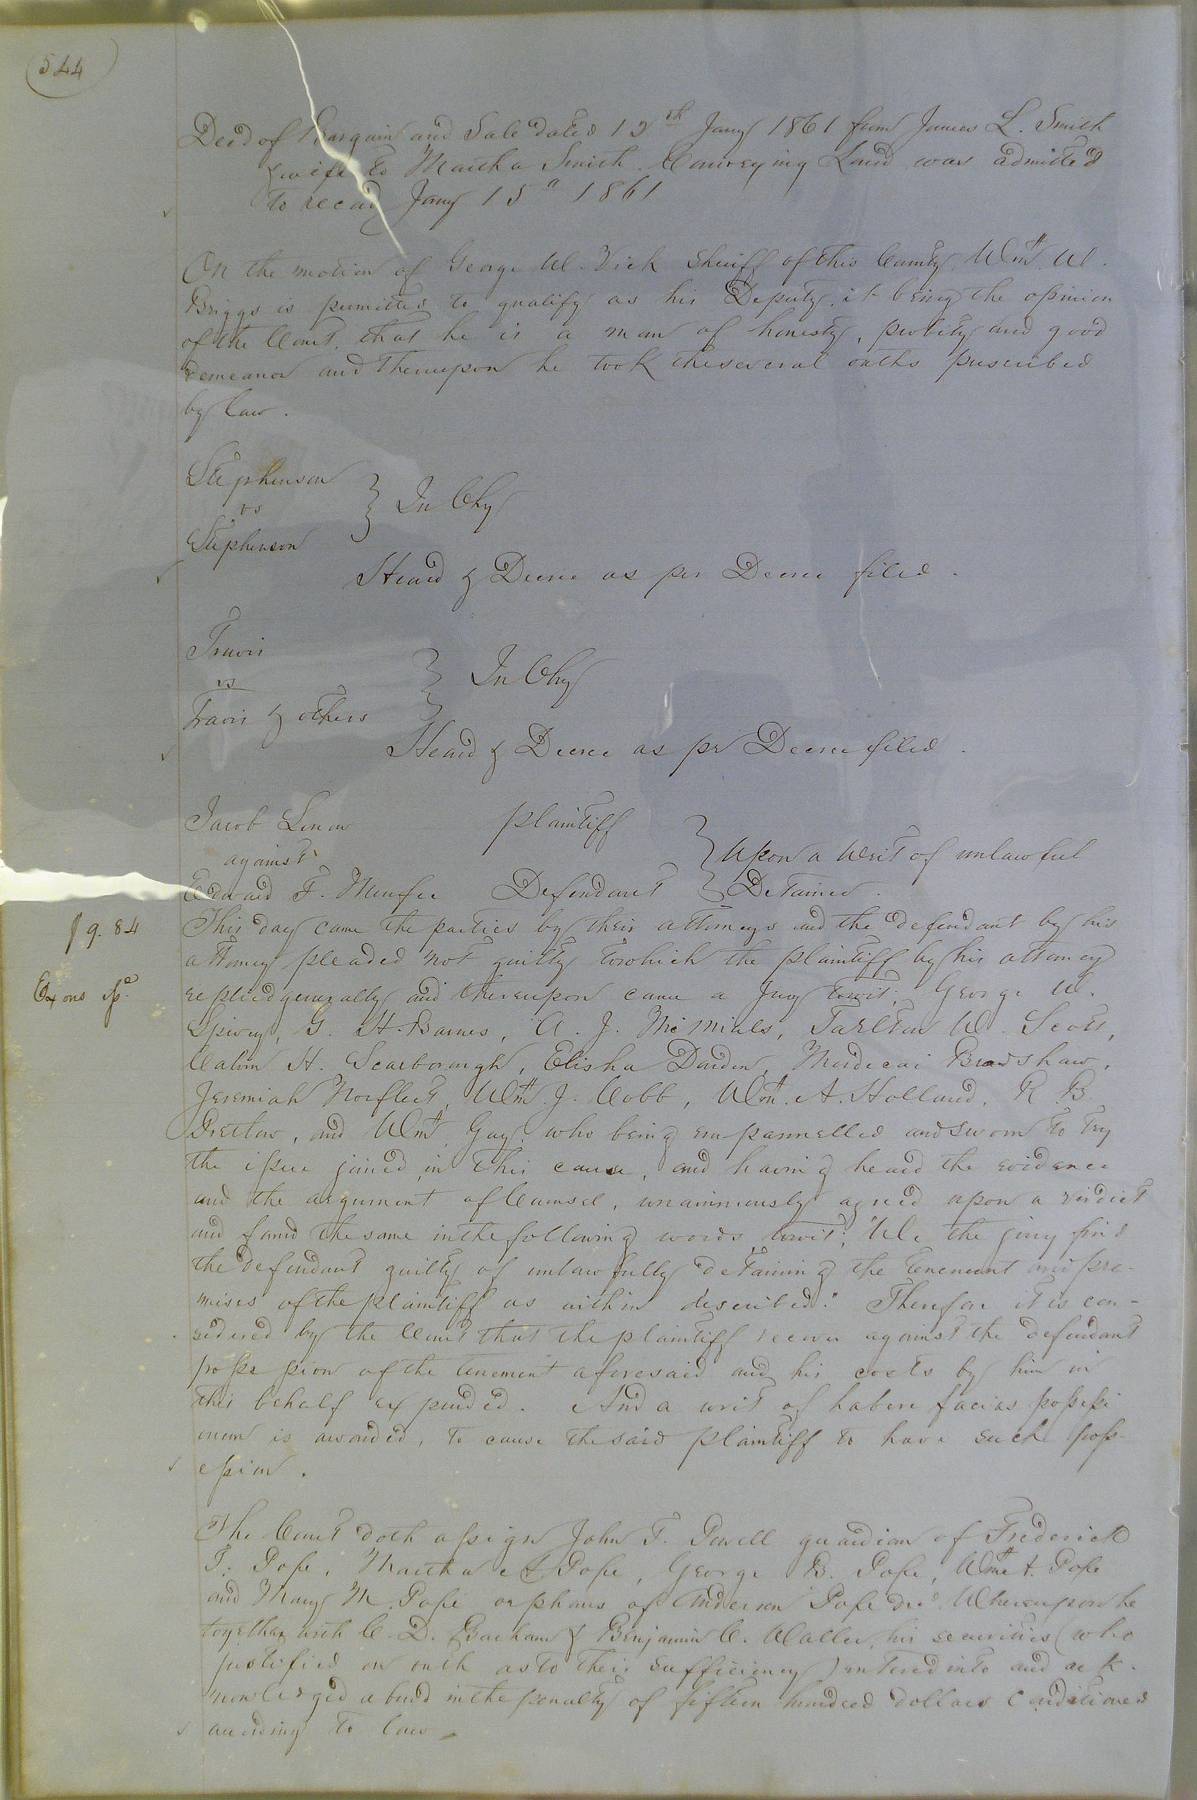 544
Deed of Bargain and Sale dated 12th Jany 1861 from James L. Smith
& wife to Martha Smith. Conveying Land was admitted
to record Jany 15" 1861
On the motion of George W. Vick Sheriff of this County, Wm. W.
Briggs is permitted to qualify as his Deputy, it being the opinion
of the Court, that he is a man of honesty, probity and good
demeanor and thereupon he took the several oaths prescribed
by law.
Stephenson
vs } In Chy
Stephenson
Heard & Decree as per Decree filed.
Travis
vs } In Chy
Travis & others
Heard & Decree as pr Decree filed.
Jacob plaintiff
against } Upon a Writ of unlawful
Edward F. Defendant } Detainer.
This day came the parties by their attorneys and the defendant by his
attorney pleaded not guilty to which the plaintiff by his attorney
replied generally and thereupon came a Jury towit; George W.
Spivey, G. H. Barnes, A. J. Tarlton W. Scott,
Calvin H. Scarborough, Elisha Darden, Mordecai Bradshaw,
Jeremiah Norfleet, Wm J. Cobb, Wm. A. Holland, R. B.
Pretlow, and Wm Gay, who being empannelled and sworn to try
the issue joined in this cause, and having heard the evidence
and the argument of Counsel, unanimously agreed upon a verdict
and found the same in the following words towit; "We the jury find
the defendant guilty of unlawfully detaining the tenement and pre-
mises of the plaintiff as within described." Therefore it is con-
sidered by the Court that the plaintiff recover against the defendant
possession of the tenement aforesaid and his costs by him in
this behalf expended. And a writ of habere facias possessi
onem is awarded, to cause the said plaintiff to have such poss-
ession.
The Court doth assign John T. Powell guardian of Frederick
T. Pope, Martha E Pope, George B. Pope, Wm. T. Pope
and Mary M. Pope orphans of Anderson Pope decd. Whereupon he
together with C. D. Barham & Benjamin C. Waller, his securities (who
justified on oath as to their sufficiency) entered into and ack-
nowledged a bond in the penalty of fifteen hundred dollars Conditioned
according to law.